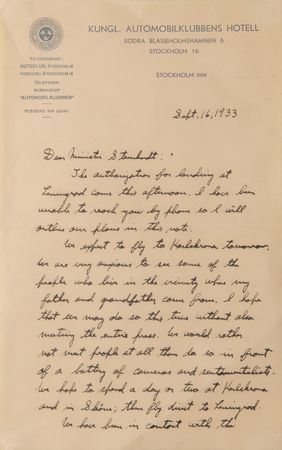 KUNGL. AUTOMOBILKLUBBENS HOTELL
SÖDRA BLASIEHOLMSHAMNEN 6
STOCKHOLM 16
TELEGRAMADR.:
AUTOCLUB, STOCKHOLM
POSTADR.: STOCKHOLM 16
TELEFONER
NAMNANROP
"AUTOMOBILKLUBBEN"
POSTGIRO NR
STOCKHOLM DEN
Sept. 16, 1933
Dear Minister Steinhardt:
The authorization for landing at
Leningrad came this afternoon. I have been
unable to reach you by phone so I will
outline our plans in this note.
We expect to fly to Karlskrona tomorrow.
We are very anxious to see some of the
people who live in the vicinity where my
father and grandfather came from. I hope
that we may do so this time without also
meeting the entire press. We would rather
not meet people at all than do so in front
of a battery of cameras and sentimentalists.
We hope to spend a day or two at Karlskrona
and in Skåne; then fly direct to Leningrad.
We have been in contact with the